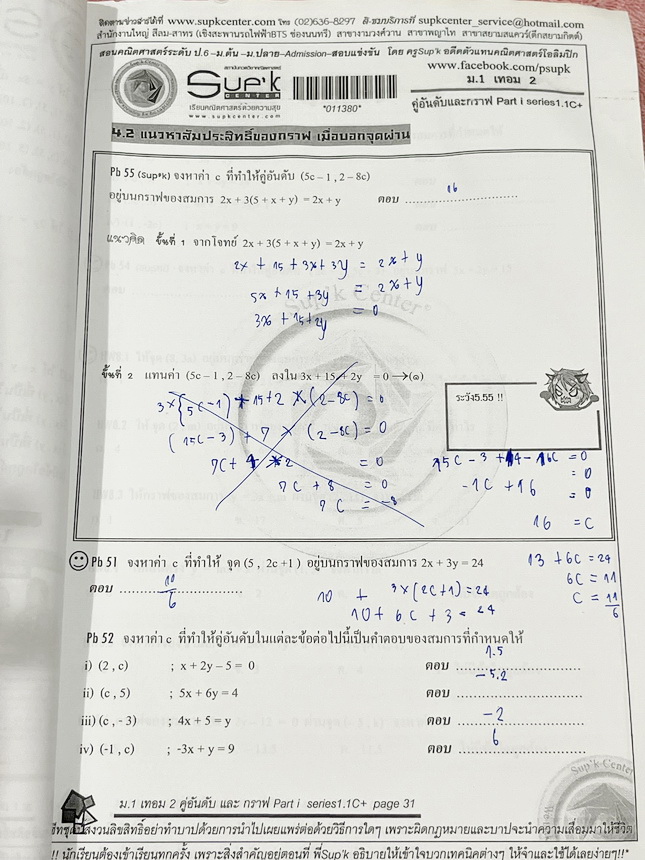 ติดตามข่าวสารได้ที่ www.supkcenter.com โทร (02)636-8297 ติ-ชมบริการที่ supkcenter_service@hotmail.com
สำนักงานใหญ่ สีลม-สาทร (เชิงสะพานรถไฟฟ้าBTS ช่องนนทรี) สาขางามวงศ์วาน สาขาพญาไท สาขาสยามสแควร์(ตึกสยามกิตต์)
สอนคณิตศาสตร์ระดับ ป.6 –ม.ต้น –ม.ปลาย–Admission–สอบแข่งขัน โดย ครูSup'k อดีตตัวแทนคณิตศาสตร์โอลิมปิก
www.facebook.com/psupk
Sup'k
CENTER
เรียนคณิตศาสตร์ด้วยความสุข
www.supkcenter.com
*011380*
ม.1 เทอม 2
คู่อันดับและกราฟ Part i series1.1C+
4.2 แนวหาสัมประสิทธิ์ของกราฟ เมื่อบอกจุดผ่าน
Pb 55 (Sup*k) จงหาค่า c ที่ทำให้คู่อันดับ (5c – 1 , 2 – 8c)
อยู่บนกราฟของสมการ 2x + 3(5 + x + y) = 2x + y ตอบ 16
แนวคิด ขั้นที่ 1 จากโจทย์ 2x + 3(5 + x + y) = 2x + y
2x + 15 + 3x + 3y = 2x + y
5x + 15 + 3y = 2x + y
3x + 15 + 2y = 0
ขั้นที่ 2 แทนค่า (5c – 1 , 2 – 8c) ลงใน 3x + 15 + 2y = 0 →(๑)
ระวัง5.55 !!
(15c-3) + 7 × (2-8c) = 0
7c + 8 = 0
7c = -8
= 0
-1c + 16 = 0
16 = c
Pb 51 จงหาค่า c ที่ทำให้ จุด (5 , 2c +1 ) อยู่บนกราฟของสมการ 2x + 3y = 24
ตอบ
10 + 3×(2c+1) = 24
10 + 6c + 3 = 24
13 + 6c = 24
6c = 11
c = 11/6
Pb 52 จงหาค่า c ที่ทำให้คู่อันดับในแต่ละข้อต่อไปนี้เป็นคำตอบของสมการที่กำหนดให้
i) (2 , c) ; x + 2y – 5 = 0 ตอบ 1.5
ii) (c , 5) ; 5x + 6y = 4 ตอบ -5.2
iii) (c , - 3) ; 4x + 5 = y ตอบ -2
iv) (-1 , c) ; -3x + y = 9 ตอบ 6
ม.1 เทอม 2 คู่อันดับ และ กราฟ Part i series1.1C+ page 31
สงวนลิขสิทธิ์อย่าทำบาปด้วยการนำไปเผยแพร่ต่อด้วยวิธีการใดๆ เพราะผิดกฎหมายและบาปจะนำความเสื่อมมาให้ชีวิต
!! นักเรียนต้องเข้าเรียนทุกครั้ง เพราะสิ่งสำคัญอยู่ตอนที่ พี่Sup'k อธิบายให้เข้าใจบวกเทคนิคต่างๆ ให้จำและใช้ได้เลยง่ายๆ!!"